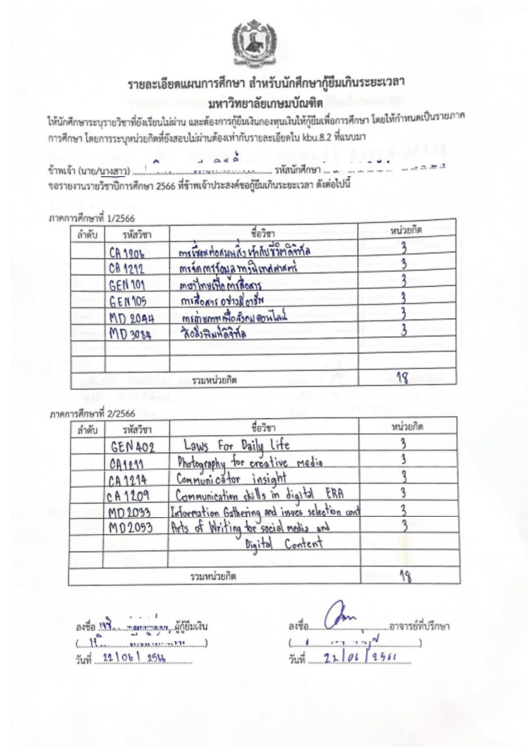 รายละเอียดแผนการศึกษา สำหรับนักศึกษากู้ยืมเกินระยะเวลา
มหาวิทยาลัยเกษมบัณฑิต
ให้นักศึกษาระบุรายวิชาที่ยังเรียนไม่ผ่าน และต้องการกู้ยืมเงินกองทุนเงินให้กู้ยืมเพื่อการศึกษา โดยให้กำหนดเป็นรายภาค
การศึกษา โดยการระบุหน่วยกิตที่ยังสอบไม่ผ่านต้องเท่ากับรายละเอียดใน kbu.8.2 ที่แนบมา
ข้าพเจ้า (นาย/นางสาว) รหัสนักศึกษา
ขอรายงานรายวิชาปีการศึกษา 2566 ที่ข้าพเจ้าประสงค์ขอกู้ยืมเกินระยะเวลา ดังต่อไปนี้
ภาคการศึกษาที่ 1/2566
ลำดับ รหัสวิชา ชื่อวิชา หน่วยกิต
CA 1206 3
CA 1212 การจัดการข้อมูลทางนิเทศศาสตร์ 3
GEN 101 ภาษาไทยเพื่อการสื่อสาร 3
GEN 105 การสื่อสารอย่างมืออาชีพ 3
MD 2044 3
MD 3084 สื่อสิ่งพิมพ์ดิจิทัล 3
รวมหน่วยกิต 18
ภาคการศึกษาที่ 2/2566
ลำดับ รหัสวิชา ชื่อวิชา หน่วยกิต
GEN 402 Laws For Daily Life 3
CA1211 Photography for creative media 3
CA 1214 Communicator insight 3
CA 1209 Communication skills in digital ERA 3
MD2033 Information Gathering and issues selection cont 3
MD2053 Arts of Writing for social media and 3
Digital Content
รวมหน่วยกิต 18
ลงชื่อ ผู้กู้ยืมเงิน ลงชื่อ อาจารย์ที่ปรึกษา
วันที่ 22/06/2566 วันที่ 22/06/2566